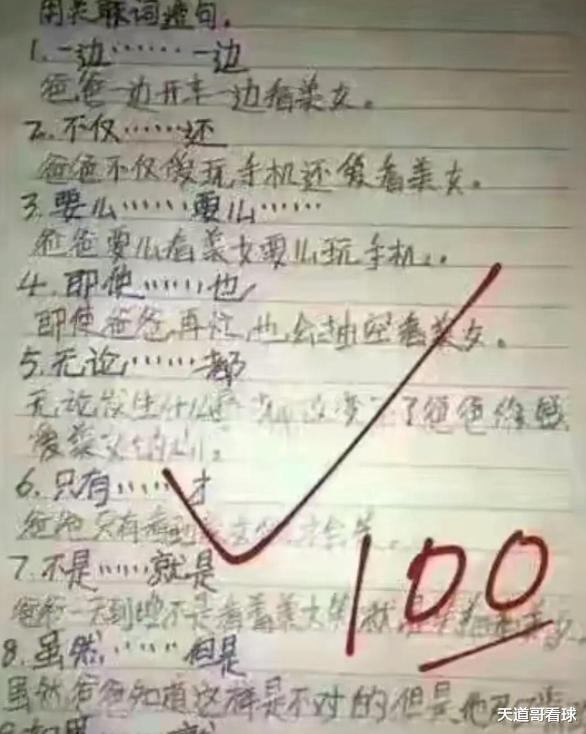 用关联词造句。
1.一边……一边
爸爸一边开车一边看美女。
2.不仅……还
爸爸不仅爱玩手机还爱看美女。
3.要么……要么……
爸爸要么看美女要么玩手机。
4.即使……也
即使爸爸再忙,也会抽空看美女。
5.无论……都
无论发生什么 改变 了爸爸
爱美女
6.只有……才
爸爸只有看到美女 才会笑。
7.不是……就是
爸爸一天到晚不是看着美女笑就是
8.虽然……但是
虽然爸爸知道这样是不对的但是他
100
天道哥看球